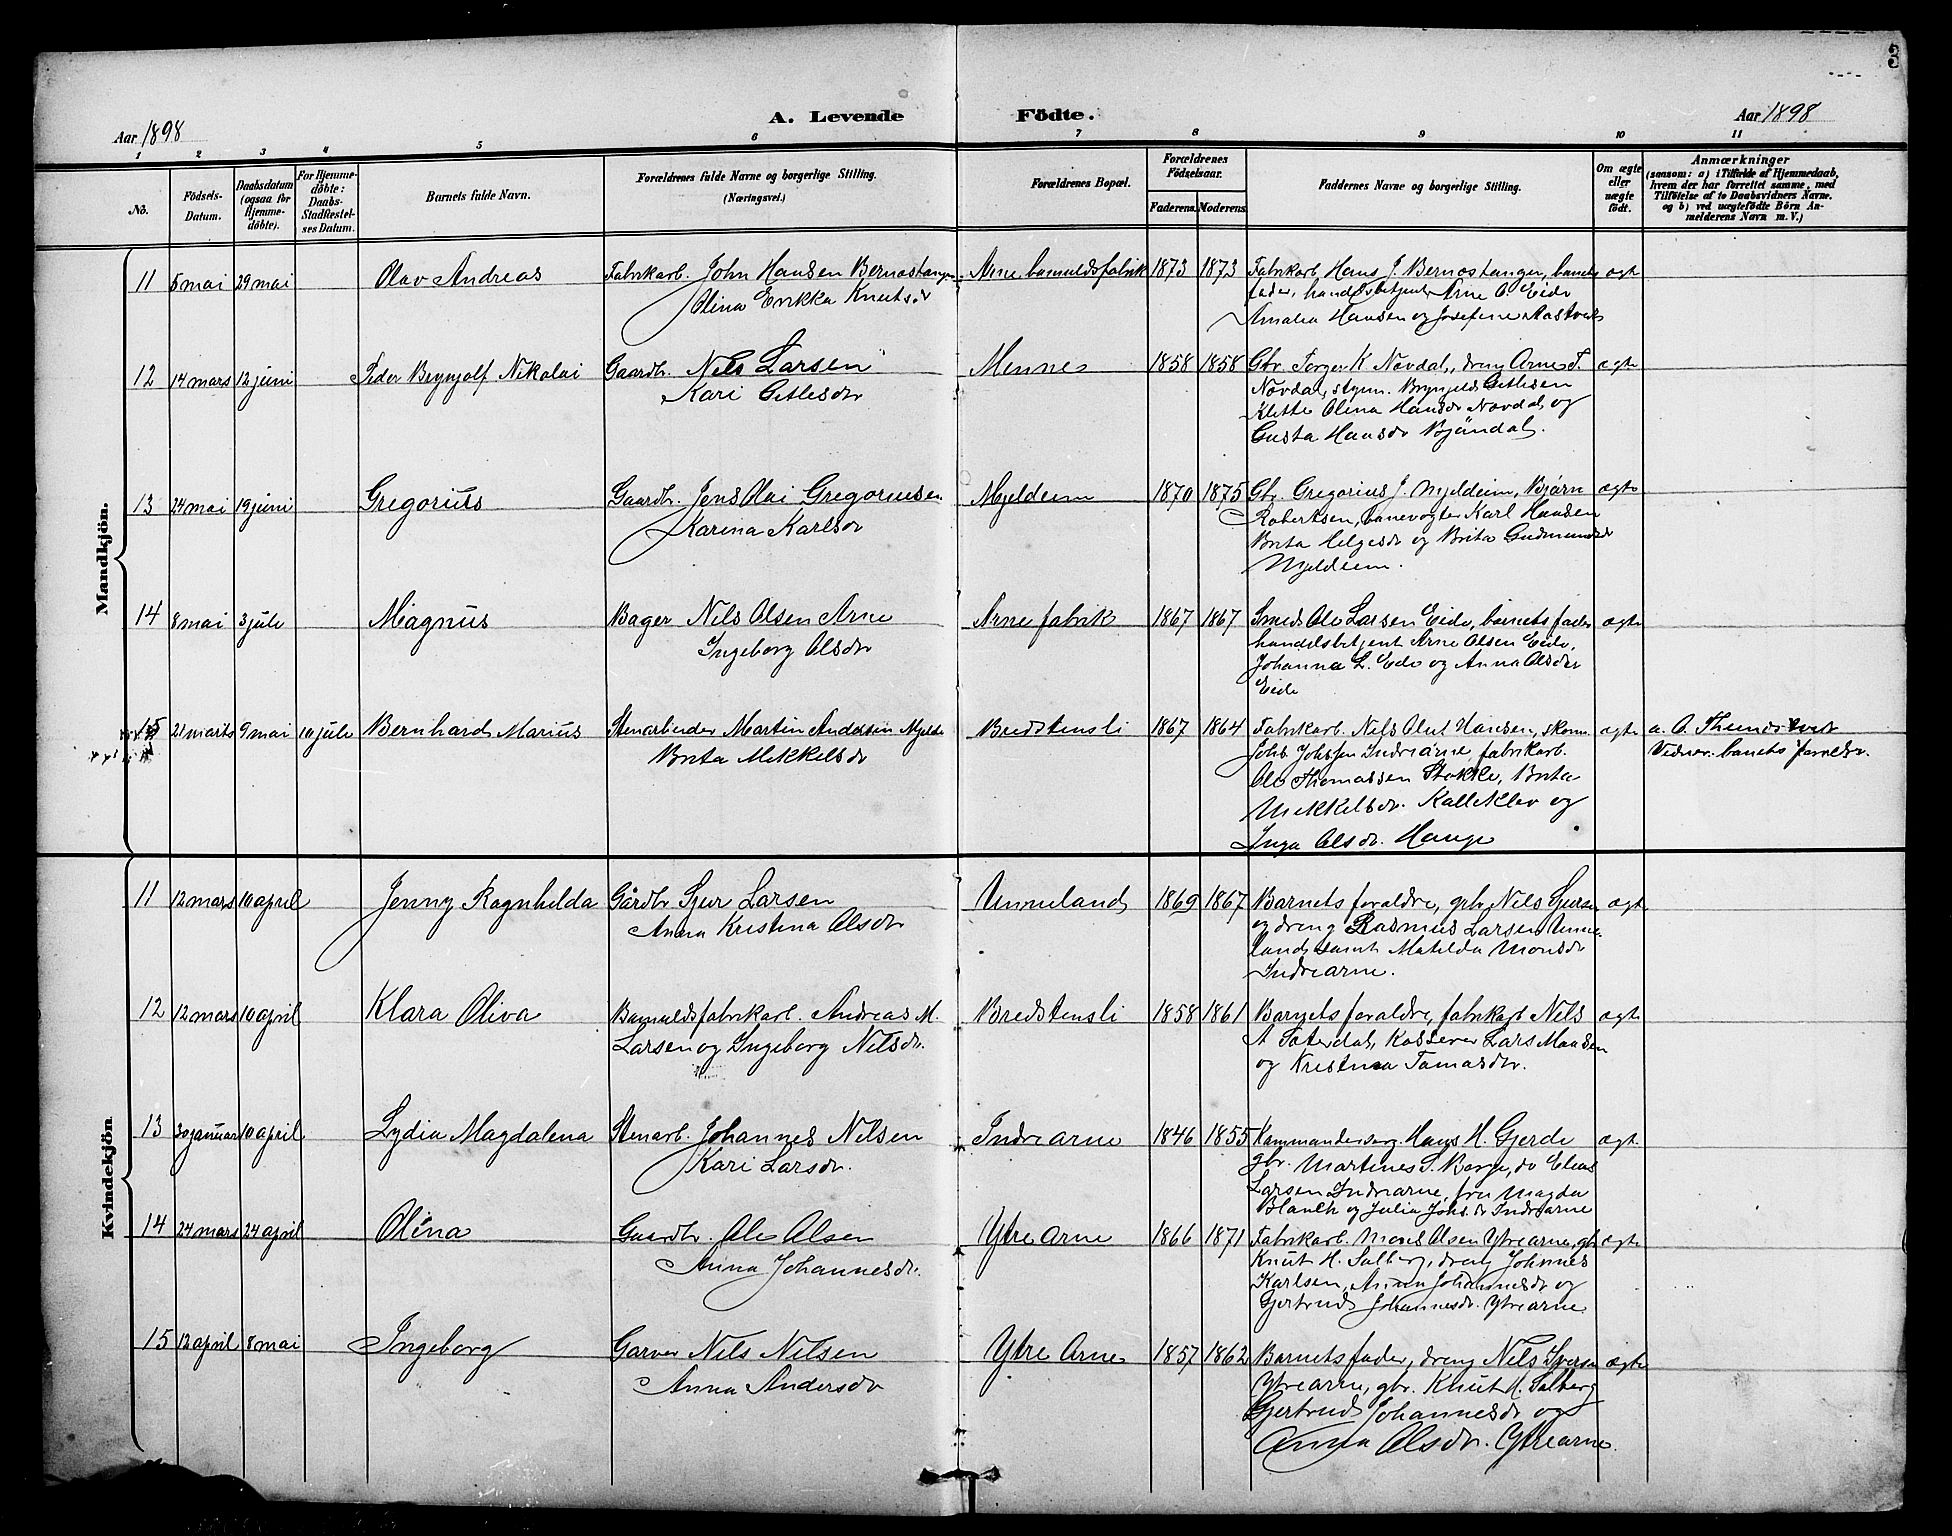 3
A. Levende Födte.
Aar 1898
Aar 1898
1 2 3 4 5 6 7 8 9 10 11
No.
Födsels-Datum.
Daabsdatum (ogsaa for Hjemme-döbte).
For Hjemme-döbte: Daabs-Stadfæstel-ses Datum.
Barnets fulde Navn.
Forældrenes fulde Navne og borgerlige Stilling. (Næringsvei.)
Forældrenes Bopæl.
Forældrenes Födselsaar.
Faderens. Moderens.
Faddernes Navne og borgerlige Stilling.
Om ægte eller uægte födt.
Anmærkninger
(saasom: a) i Tilfælde af Hjemmedaab,
hvem der har forrettet samme, med
Tilföielse af to Daabsvidners Navne.
og b) ved uægtefödte Börn An-
melderens Navn m. V.)
Mandkjön.
11 5 mai 29 mai Olav Andreas Fabrikarb. John Hansen Bernastangen Arne bomuldsfabrik 1873 1873 Fabrikarb Hans J. Bernostangen, barnets ægte
Olina Erikka Knutsdr fader, handelsbetjent Arne O. Eide
Amalia Hansen og Josefine
12 14 mars 12 juni Peder Brynjolf Nikolai Gaardbr. Nils Larsen Menne 1858 1858 Gbr Torger K Novdal, dreng Arne T. ægte
Kari Gitlesdr Novdal, styrm. Brynjulf Gitlesen
Klette Olina Hansdr Novdal og
Gusta Hansdr Bjöndal.
13 24 mai 19 juni Gregorius Gaardbr. Jens Olai Gregoriussen Mjeldeim 1870 1875 Gbr. Gregorius J. Mjeldeim, Bjørn ægte
Karina Karlsdr Robertsen, banevogter Karl Hansen
Brita Helgesdr og Brita Gudmundsdr
Mjeldeim.
14 8 mai 3 jule Magnus Bager Nils Olsen Arne Arne fabrik 1867 1867 Smed Ole Larsen Eide, barnets fader ægte
Ingeborg Olsdr handelsbetjent Arne Olsen Eide,
Johanna L. Eide og Anna Olsdr
Eide
15 21 marts 9 mai 10 jule Bernhard Marius Stenarbeider Martin Andersen Mjelde Bredstensli 1867 1864 Fabrikarb. Nils Olut Hansen, skom. ægte a. O.
Brita Mikkelsdr Johs. Johssen Indrearne, fabrikarb. Vidner: barnets foreldr.
Ole Thomassen Stokke, Brita
Mikkelsdr. Kalleklev og
Inga Olsdr. Hauge
Kvindekjön
11 12 mars 10 april Jenny Ragnhilda Gårdbr Sjur Larsen Unneland 1869 1867 Barnets foraldre, gbr Nils Sjursen ægte
Anna Kristina Olsdr og dreng Rasmus Larsen Unne-
land, samt Matilda Monsdr
Indrearne.
12 12 mars 10 april Klara Oliva Bomuldsfabrikarb. Andreas M. Bredstensli 1858 1861 Barnets foraldre, fabrikarb Nils ægte
Larsen og Ingeborg Nilsdr. A Sæterdal, Kasserer Lars Monsen
og Kristina Tomasdtr.
13 30 januar 10 april Lydia Magdalena Stenarb. Johannes Nilsen Indrearne 1846 1855 Kommanderserg. Hans H. Gjerde ægte
Kari Larsdr. gbr. Martines S. Borge, do Elias
Larsen Indrearne, fru Magda
Blauch og Julia Johs.dr Indrearne
14 24 mars 24 april Olina Gaardbr. Ole Olsen Ytre Arne 1866 1871 Fabrikarb. Mons Olsen Ytrearne, gbr ægte
Anna Johannesdr. Knut H. Salberg, dreng Johannes
Karlsen, Anna Johannesdr og
Gjertrud Johannesdr. Ytrearne
15 12 april 8 mai Ingeborg Garver Nils Nilsen Ytre Arne 1857 1862 Barnets fader, dreng Nils Iversen ægte
Anna Andersdr Ytrearne, gbr. Knut H. Salberg
Gjertrud Johannesdr og
Anna Olsdr. Ytrearne.